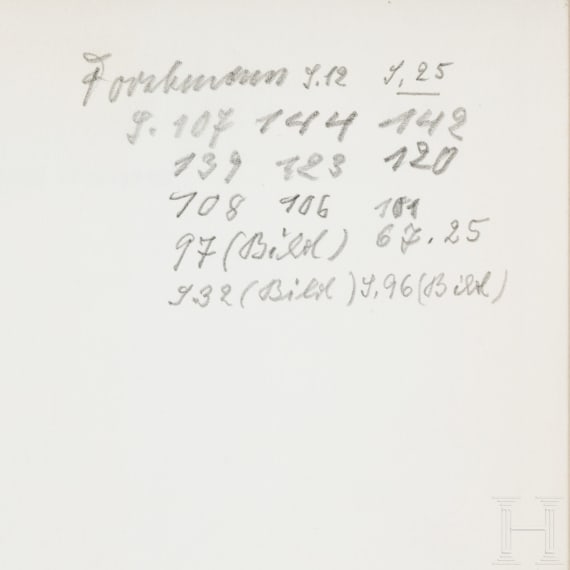 Forschmann S.12 S. 25
S. 107 144 142
139 123 120
108 106 101
97 (Bild) 67. 25
S32 (Bild) S. 96 (Bild)
H